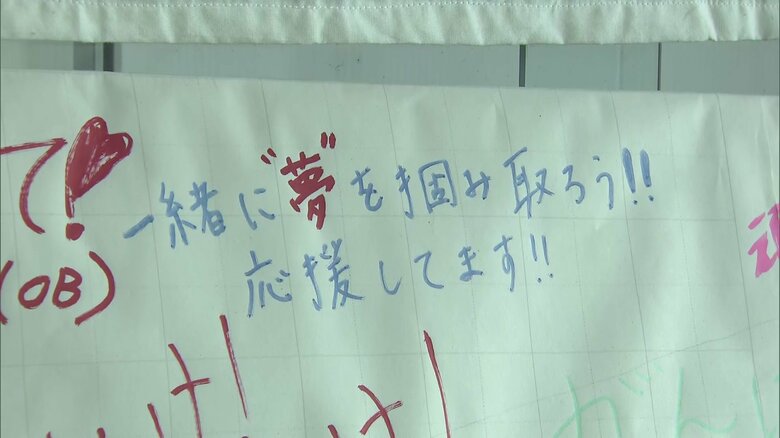 て!
(OB)
一緒に"夢"を掴み取ろう!!
応援してます!!